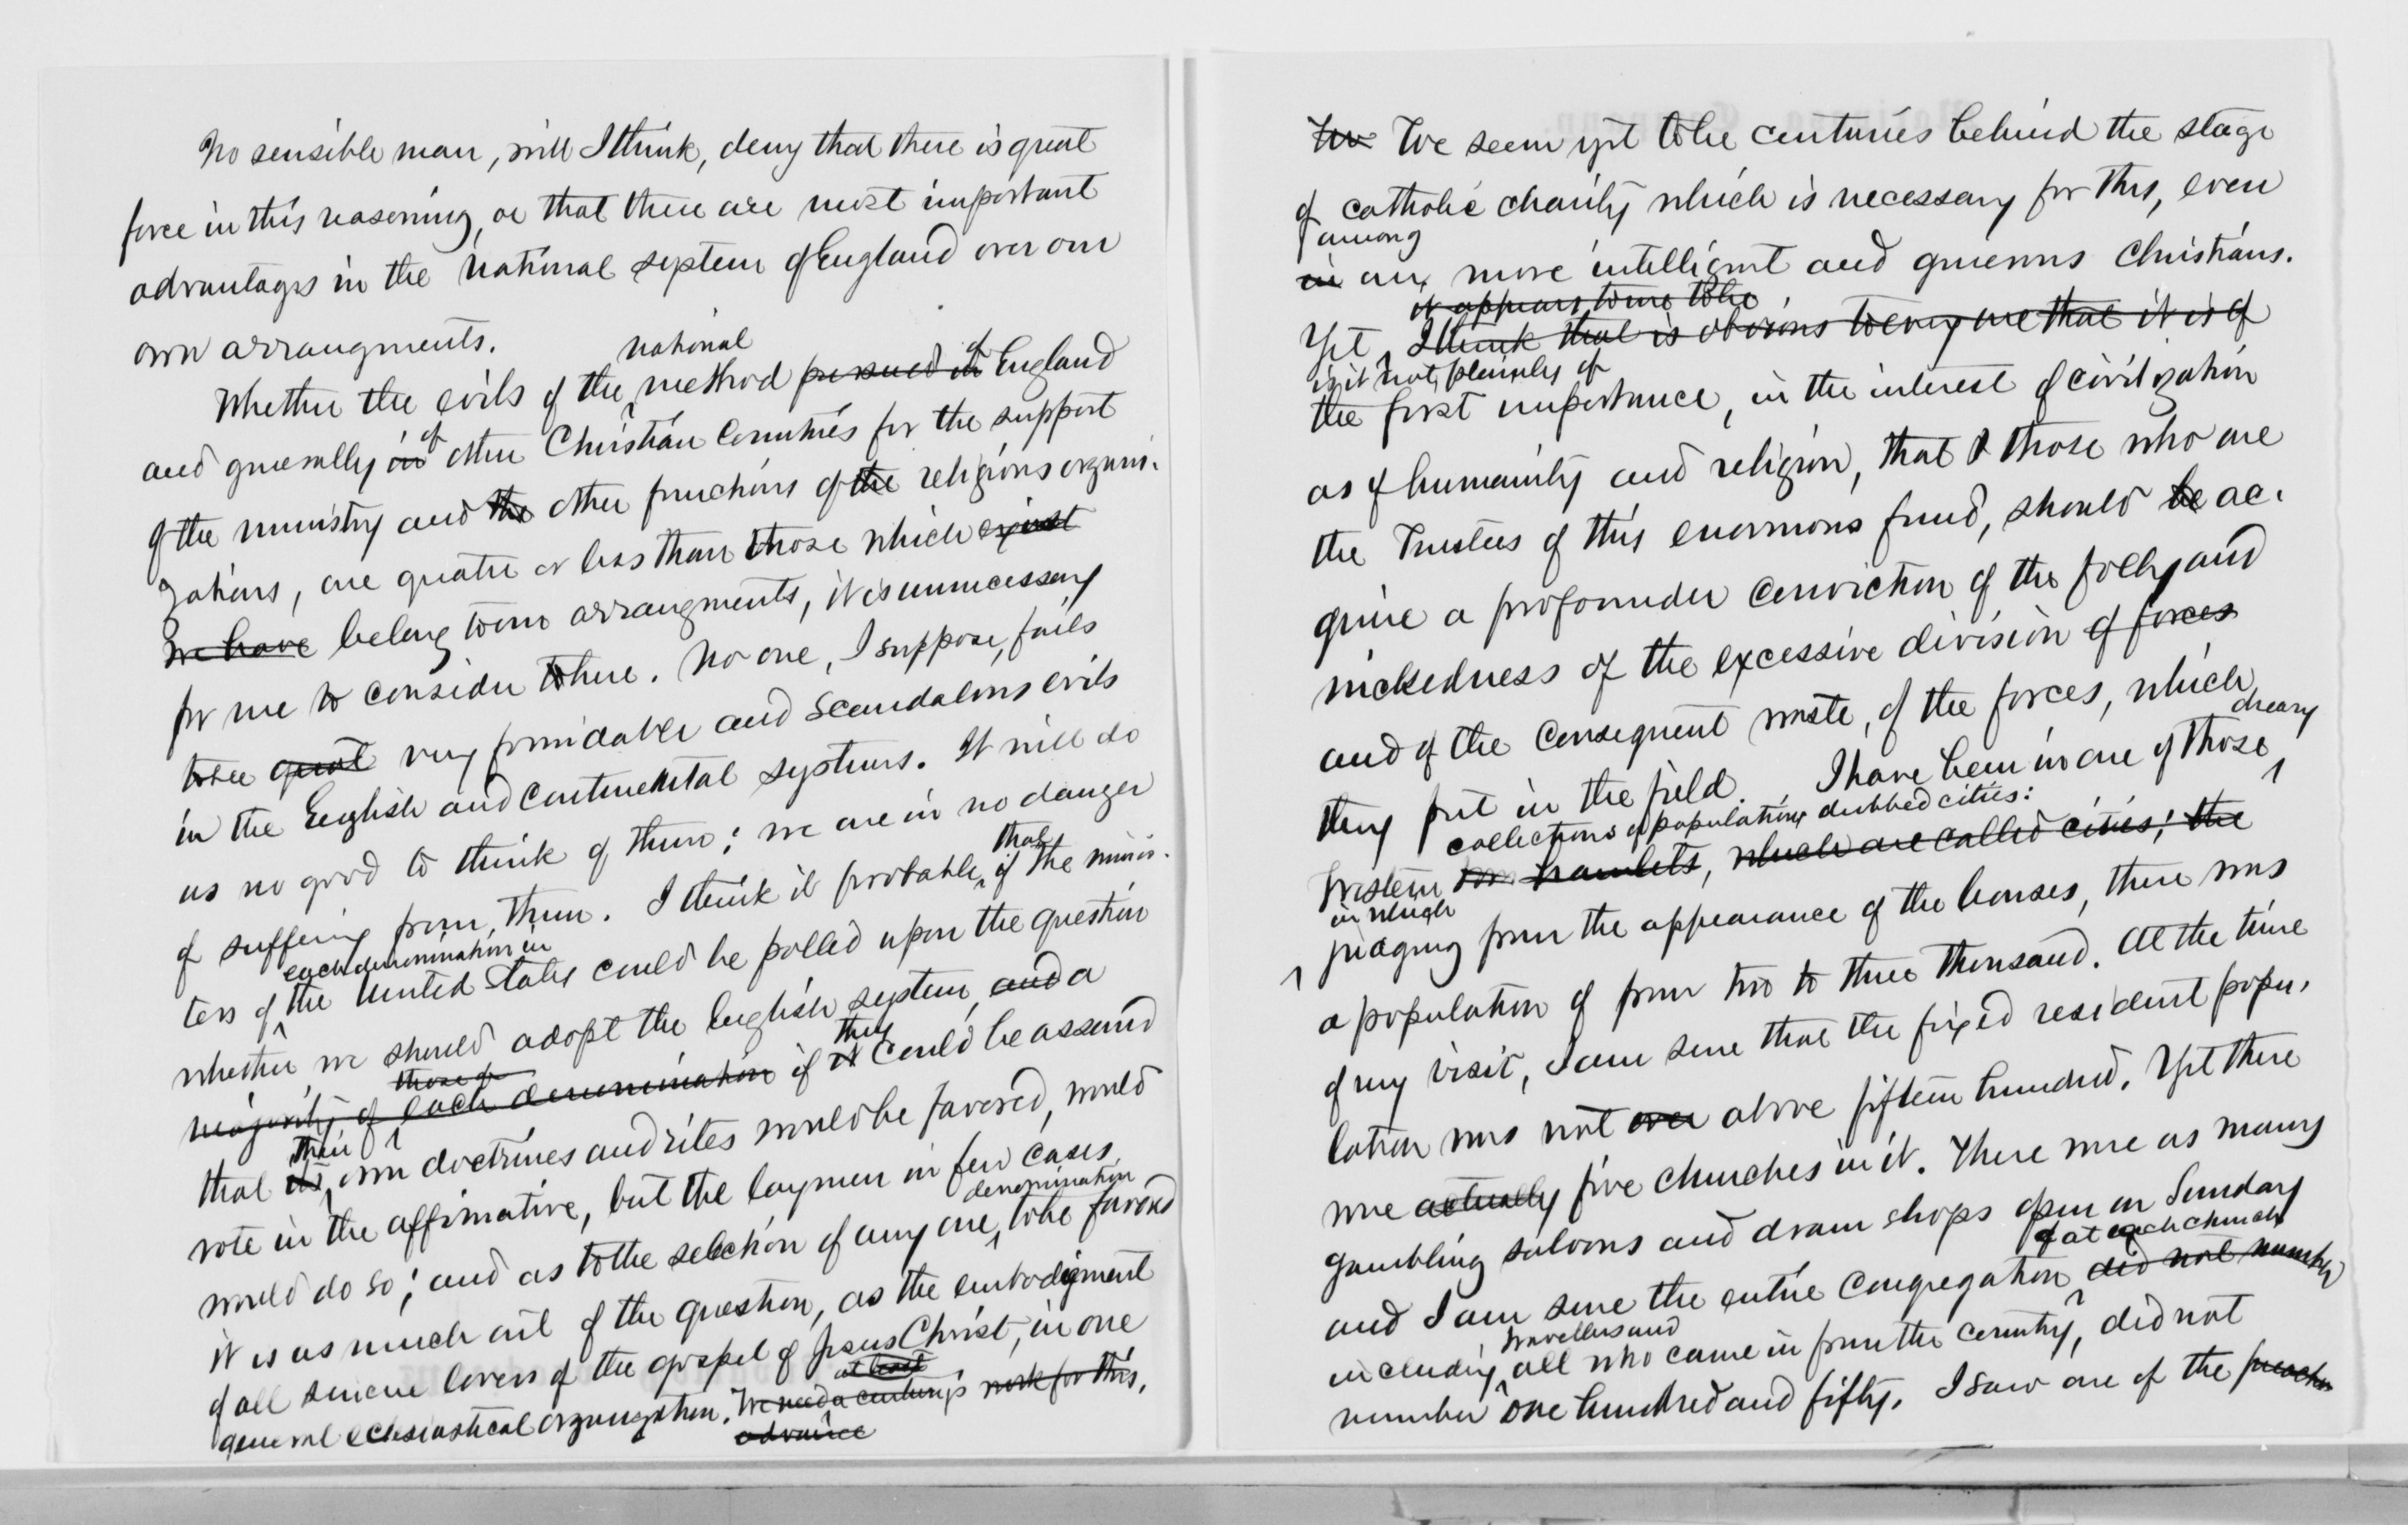 No sensible man, will I think, deny that there is great
force in this reasoning, or that there are most important
advantages in the national system of England over our
own arrangments.
national
Whether the evils of the method pursued in of England
and generally in of other Christian Countries for the support
of the ministry and the other functions of the religious organi-
zations, are greater or less than those which exist
we have belong to our arrangments, it is unnecessary
for me to consider here. No one, I suppose, fails
to see great very formidable and scandalous evils
in the English and Continental systems. It will do
us no good to think of them; we are in no danger
of suffering from them. I think it probable, that if the minis-
each denomination in
ters of the United States could be polled upon the question
whether we should adopt the English system, and a
those of they
majority of each denomination if it could be assured
their
that its own doctrines and rites would be favored, would
vote in the affirmative, but the laymen in few cases
denomination
would do so; and as to the selection of any one, to be favored
it is as much out of the question, as the embodyment
of all sincere lovers of the gospel of Jesus Christ, in one
at least
general ecclesiastical organization. We need a century's work for this.
advance
We seem yet to be centuries behind the stage
of catholic charity which is necessary for this, even
among
in our more intelligent and generous Christians.
it appears to me to be
Yet, I think that is obvious to every one that it is of
is it not plainly of
the first importance, in the interest of civilization
as of humanity and religion, that those who are
the Trustees of this enormous fund, should be ac-
quire a profounder conviction of the folly and
wickedness of the excessive division of forces
and of the consequent waste, of the forces, which
dreary
they put in the field. I have been in one of those
collections of population dubbed cities:
Western hamlets, which are called cities; the
in which
judging from the appearance of the houses, there was
a population of from two to three thousand. At the time
of my visit, I am sure that the fixed resident popu-
lation was not over above fifteen hundred. Yet there
were actually five churches in it. There were as many
gambling saloons and dram shops open on Sunday
of at each church
and I am sure the entire congregation did not number
travellers and
including all who came in from the country, did not
number one hundred and fifty. I saw one of the preacher